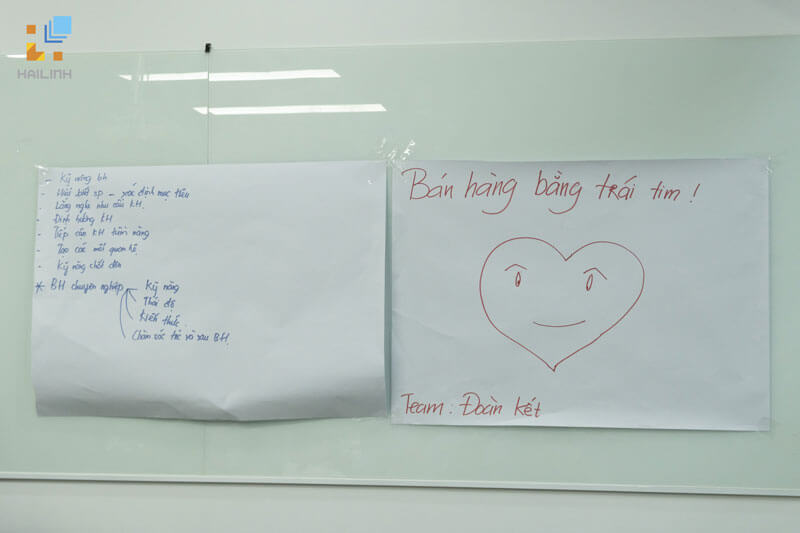 HAILINH
- Kỹ năng bh
- Hiểu biết sp - xác định mục tiêu
- Lắng nghe nhu cầu KH.
- Định hướng KH
- Tiếp cận KH tiềm năng
- Tạo các mối quan hệ
- Kỹ năng chốt đơn
* BH chuyên nghiệp Kỹ năng
Thái độ
Kiến thức.
Chăm sóc trc và sau BH.
Bán hàng bằng trái tim !
Team : Đoàn kết